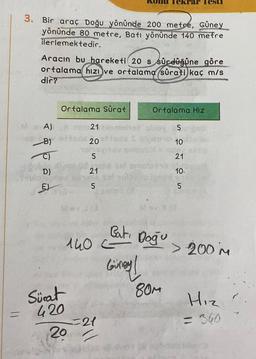 Konu Tekrar Testi
3. Bir araç Doğu yönünde 200 metre, Güney
yönünde 80 metre, Batı yönünde 140 metre
ilerlemektedir.
Aracın bu hareketi 20 s sürdüğüne göre
ortalama hızı ve ortalama sürati kaç m/s
dir?
Ortalama Sürat Ortalama Hız
A) 21 5
B) 20 10
C) 5 21
D) 21 10
E) 5 5
140 Batı Doğu > 200 m
Güney
80m
Sürat
= 420
20 = 21
Hız
= 340